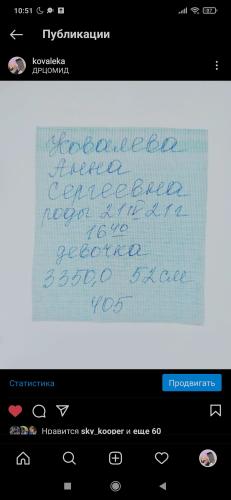 10:51
87
Публикации
kovaleka
ДРЦОМИД
Ковалева
Анна
Сергеевна
роды 21 IV 21 г
16 40
девочка
3350,0 52 см
405
Статистика
Продвигать
Нравится sky_kooper и еще 60